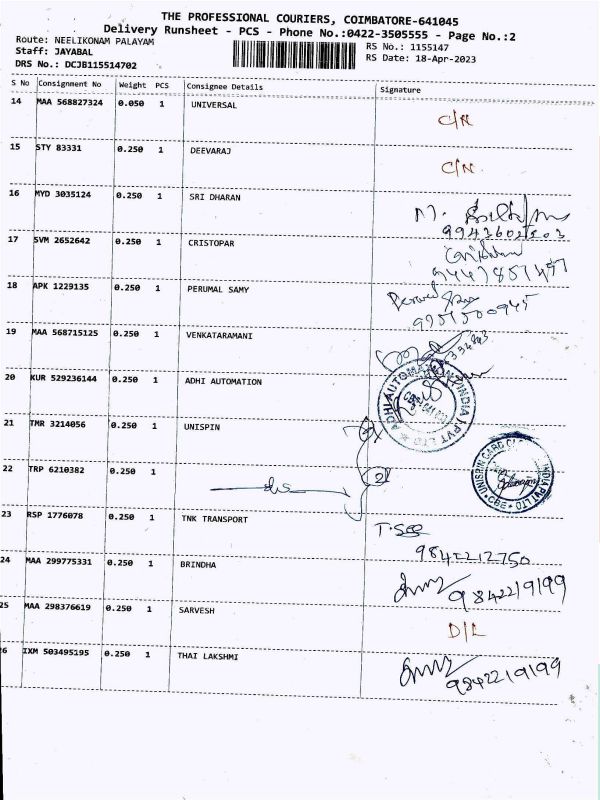 THE PROFESSIONAL COURIERS, COIMBATORE-641045
Delivery Runsheet - PCS - Phone No.:0422-3505555 - Page No.:2
Route: NEELIKONAM PALAYAM
RS No.: 1155147
Staff: JAYABAL
RS Date: 18-Apr-2023
DRS No.: DCJB115514702
S No Consignment No Weight PCS Consignee Details Signature
14 MAA 568827324 0.050 1 UNIVERSAL
15 STY 83331 0.250 1 DEEVARAJ
16 MYD 3035124 0.250 1 SRI DHARAN
17 SVM 2652642 0.250 1 CRISTOPAR
18 APK 1229135 0.250 1 PERUMAL SAMY
19 MAA 568715125 0.250 1 VENKATARAMANI
20 KUR 529236144 0.250 1 ADHI AUTOMATION
ADHI AUTOMATION INDIA PVT LTD
21 TMR 3214056 0.250 1 UNISPIN
22 TRP 6210382 0.250 1
23 RSP 1776078 0.250 1 TNK TRANSPORT
9842212750
24 MAA 299775331 0.250 1 BRINDHA
9842219199
25 MAA 298376619 0.250 1 SARVESH
D/L
26 IXM 503495195 0.250 1 THAI LAKSHMI
9842219199